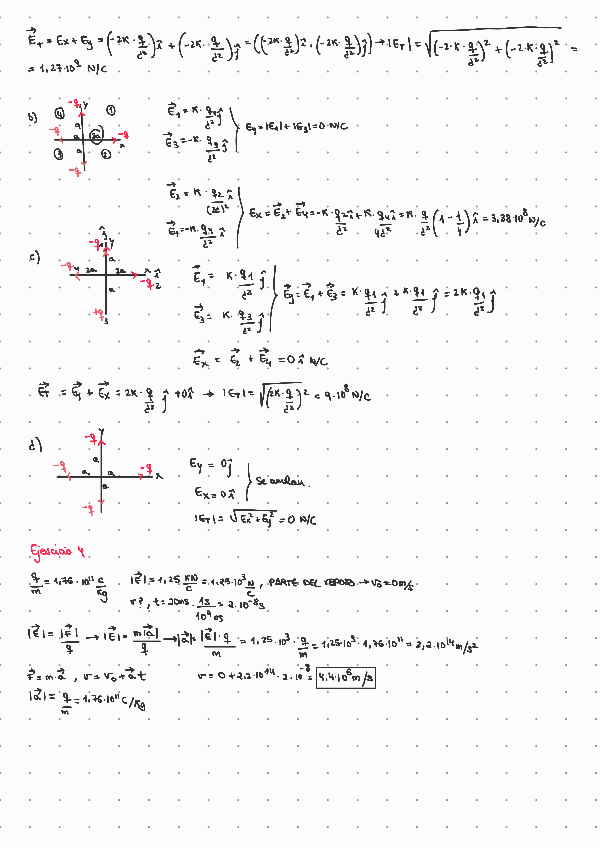 E⃗T = Ex + Ey = (-2K · q/d²) î + (-2K · q/d²) ĵ = ((-2K · q/d²) î, (-2K · q/d²) ĵ) → |ET| = √((-2·K·q/d²)² + (-2·K·q/d²)²) =
= 1,27·10⁹ N/C
b) -q y ④ ① a -q a 2a -q x ③ a ② -q
E⃗1 = K · q1/d² ĵ
E⃗3 = -K · q3/d² ĵ
Ey = |E1| + |E3| = 0 N/C
E⃗2 = K · q2/(2d)² î
E⃗4 = -K · q4/d² î
Ex = E⃗2 + E⃗4 = -K · q2/d² î + K · q4/4d² î = K · q/d² (1 - 1/4) î = 3,38·10⁸ N/C
c) ĵ -q 1 y a -q 4 2a 2a x î -q 2 a +q 3
E⃗1 = K · q1/d² ĵ
E⃗3 = K · q3/d² ĵ
E⃗y = E⃗1 + E⃗3 = K · q1/d² ĵ + K · q1/d² ĵ = 2K · q1/d² ĵ
E⃗x = E⃗2 + E⃗4 = 0 î N/C
E⃗T = E⃗y + E⃗x = 2K · q/d² ĵ + 0î → |ET| = √(2K · q/d²)² = 9·10⁸ N/C
d) y -q a -q a a -q x a -q
Ey = 0ĵ
Ex = 0î
Se anulan.
|ET| = √Ex² + Ey² = 0 N/C
Ejercicio 4
q/m = 1,76·10¹¹ C/Kg |E⃗| = 1,25 KN/C = 1,25·10³ N/C, PARTE DEL REPOSO → v0 = 0 m/s
v?, t = 20ns · 1s/10⁹ns = 2·10⁻⁸ s
|E⃗| = |F⃗|/q → |E⃗| = m|a⃗|/q → |a⃗| = |E⃗|·q/m = 1,25·10³ · q/m = 1,25·10³ · 1,76·10¹¹ = 2,2·10¹⁴ m/s²
F⃗ = m·a⃗ , v = v0 + a⃗ t v = 0 + 2,2·10¹⁴ · 2·10⁻⁸ = 4,4·10⁶ m/s
|a⃗| = q/m = 1,76·10¹¹ C/Kg